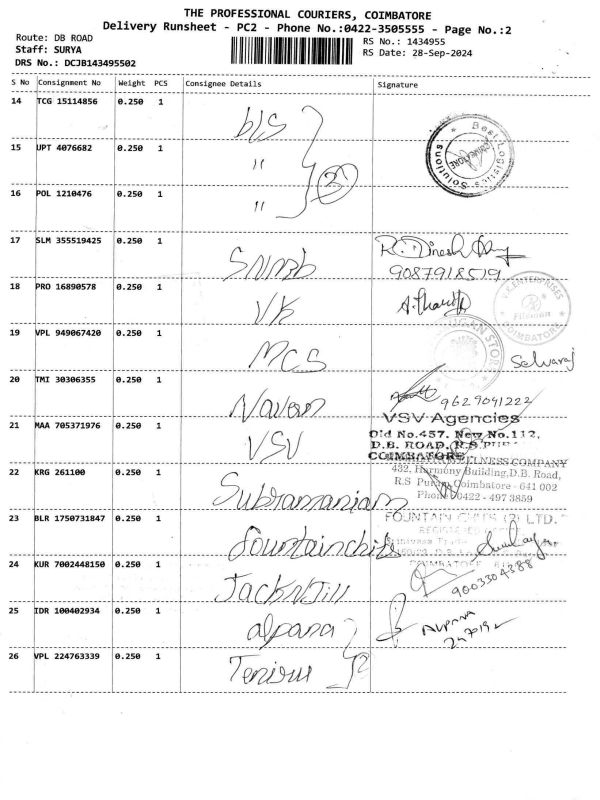 THE PROFESSIONAL COURIERS, COIMBATORE
Delivery Runsheet - PC2 - Phone No.:0422-3505555 - Page No.:2
Route: DB ROAD
Staff: SURYA
DRS No.: DCJB143495502
RS No.: 1434955
RS Date: 28-Sep-2024
S No Consignment No Weight PCS Consignee Details Signature
14 TCG 15114856 0.250 1 bls
15 UPT 4076682 0.250 1 "
16 POL 1210476 0.250 1 "
3
Best Logistics Solutions
COIMBATORE
17 SLM 355519425 0.250 1
R. Dinesh
9087918519
18 PRO 16890578 0.250 1 VK
ENTERPRISES
COIMBATORE
19 VPL 949067420 0.250 1 MCS
Selvaraj
20 TMI 30306355 0.250 1 Naveen
9629041222
21 MAA 705371976 0.250 1 VSV
VSV Agencies
Old No.457, New No.112,
D.B. ROAD, R.S PURAM
COIMBATORE
22 KRG 261100 0.250 1 Subramaniam
WELLNESS COMPANY
432, Harmony Building, D.B. Road,
R.S Puram, Coimbatore - 641 002
Phone: 0422 - 497 3859
23 BLR 1750731847 0.250 1 fountainchits
FOUNTAIN CHITS (P) LTD.
REGISTERED OFFICE
COIMBATORE
24 KUR 7002448150 0.250 1 JackNJill
9003304388
25 IDR 100402934 0.250 1 alpana
ALPANA
26 VPL 224763339 0.250 1
2